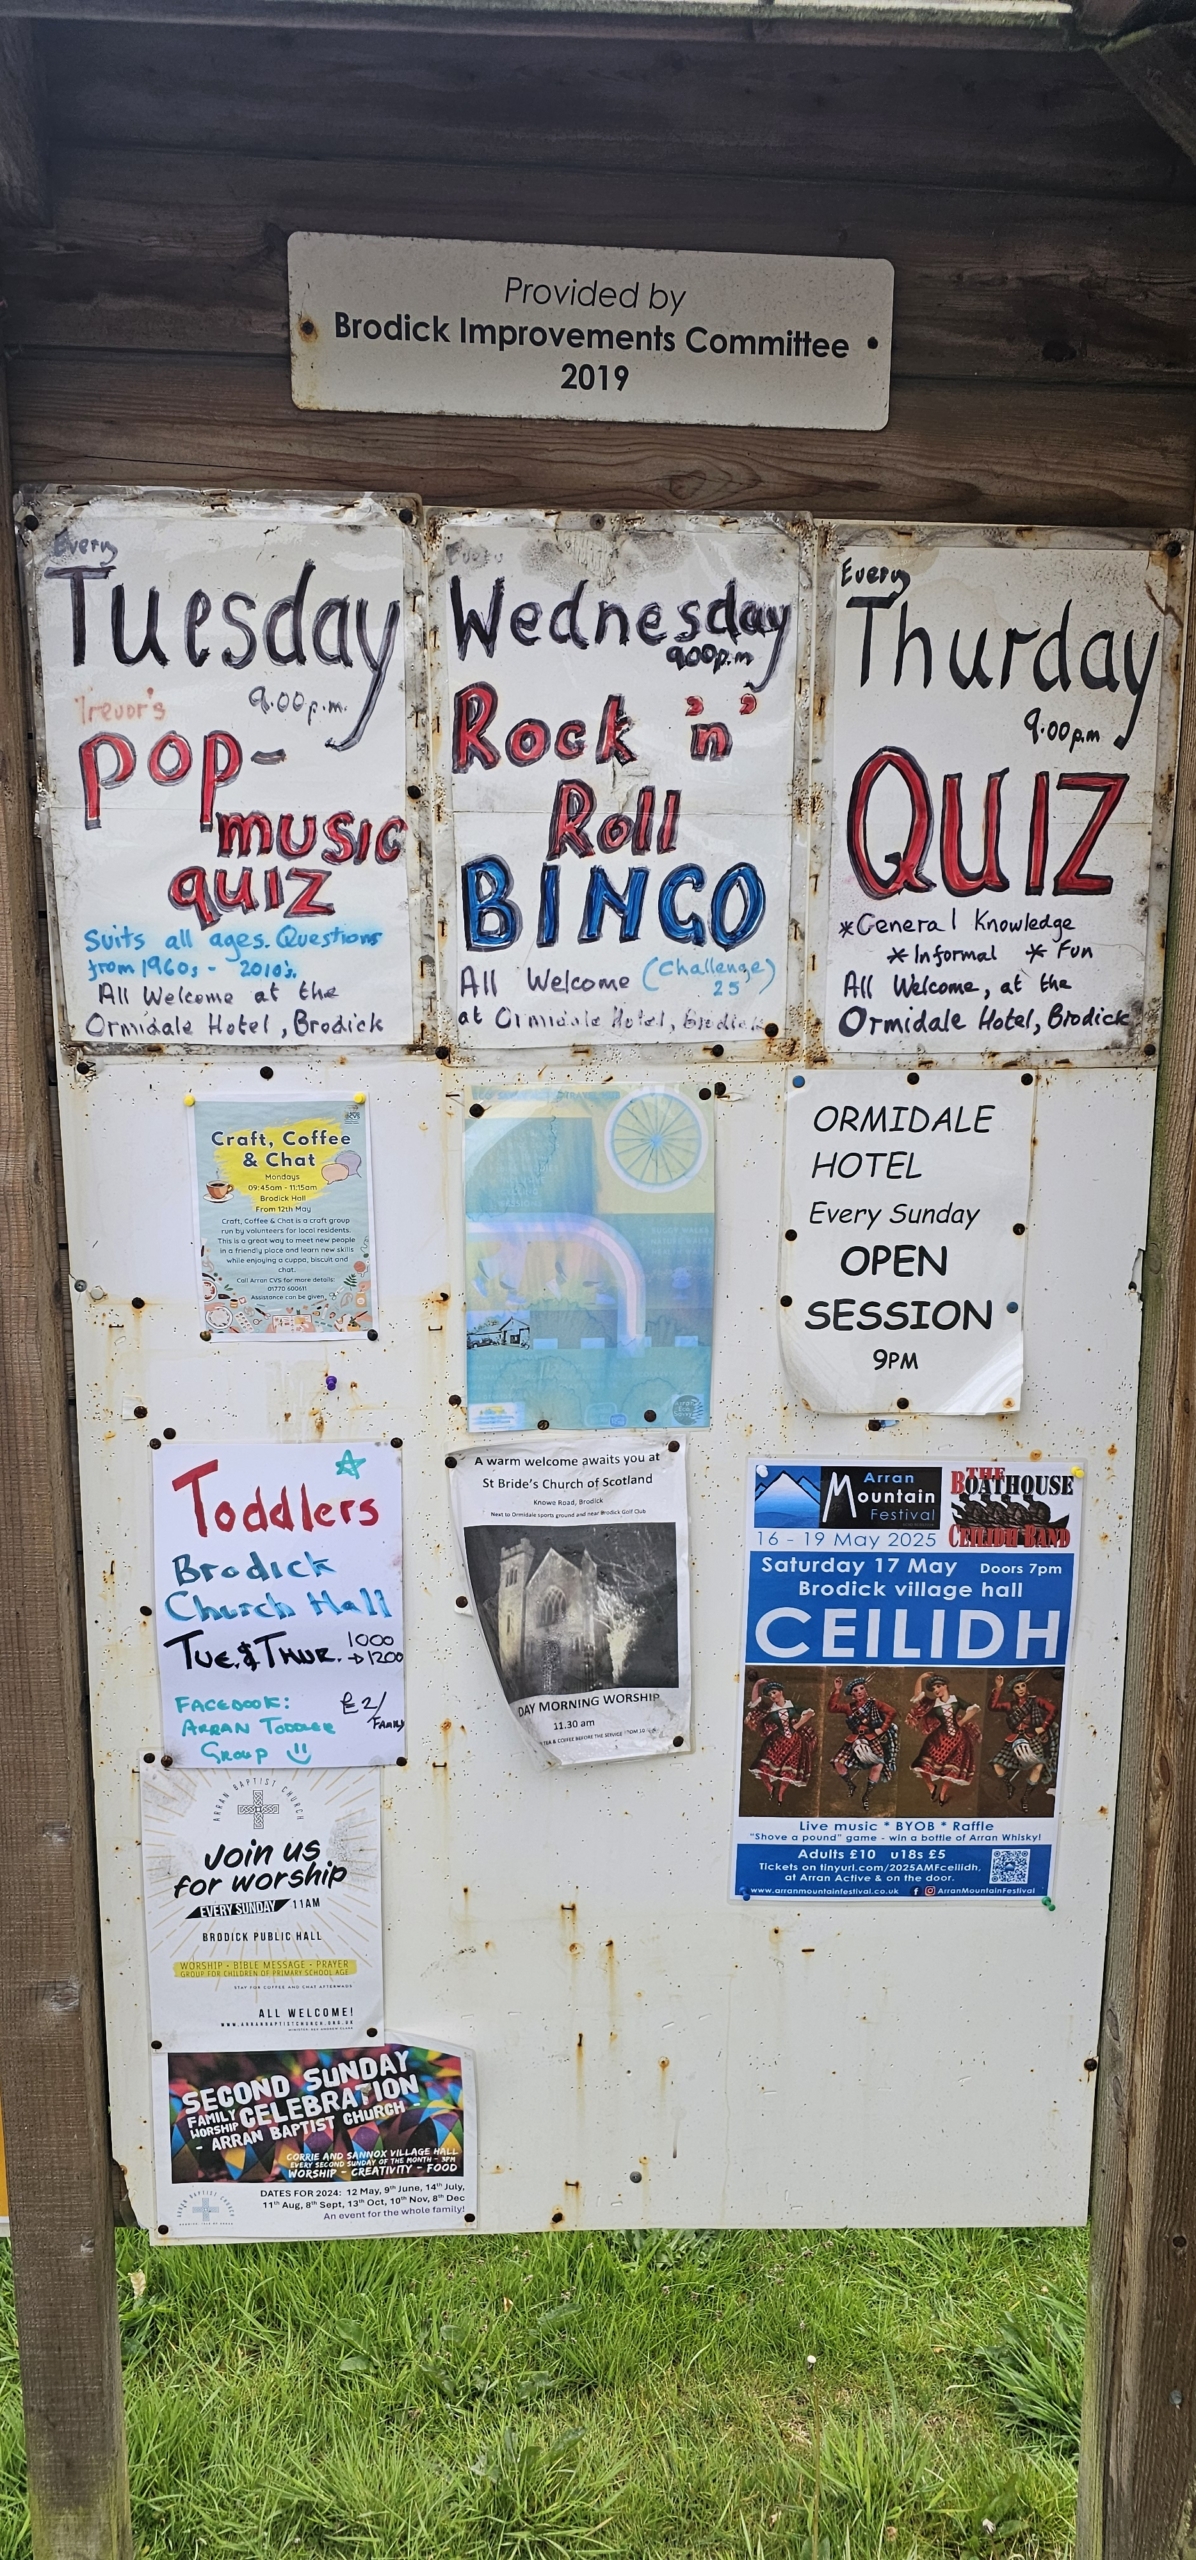 Provided by
Brodick Improvements Committee
2019
Every
Tuesday
9.00p.m.
Trevor's
pop-
music
quiz
Suits all ages. Questions
from 1960s - 2010's.
All Welcome at the
Ormidale Hotel, Brodick
Every
Wednesday
9.00p.m
Rock 'n'
Roll
BINGO
All Welcome (Challenge)
25
at Ormidale Hotel, Brodick
Every
Thurday
9.00p.m
QUIZ
*General Knowledge
*Informal * Fun
All Welcome, at the
Ormidale Hotel, Brodick
Craft, Coffee
& Chat
Mondays
09:45am - 11:15am
Brodick Hall
From 12th May
Craft, Coffee & Chat is a craft group
run by volunteers for local residents.
This is a great way to meet new people
in a friendly place and learn new skills
while enjoying a cuppa, biscuit and
chat.
Call Arran CVS for more details:
01770 600611
Assistance can be given
ORMIDALE
HOTEL
Every Sunday
OPEN
SESSION
9PM
Toddlers
Brodick
Church Hall
TUE. & THUR. 1000
→ 1200
FACEBOOK:
ARRAN TODDLER
GROUP
£2/
FAMILY
A warm welcome awaits you at
St Bride's Church of Scotland
Knowe Road, Brodick
Next to Ormidale sports ground and near Brodick Golf Club
DAY MORNING WORSHIP
11.30 am
TEA & COFFEE BEFORE THE SERVICE
Arran
Mountain
Festival
16 - 19 May 2025
THE
BOATHOUSE
CEILIDH BAND
Saturday 17 May Doors 7pm
Brodick village hall
CEILIDH
Live music * BYOB * Raffle
"Shove a pound" game - win a bottle of Arran Whisky!
Adults £10 u18s £5
Tickets on tinyurl.com/2025AMFceilidh,
at Arran Active & on the door.
www.arranmountainfestival.co.uk ArranMountainFestival
ARRAN BAPTIST CHURCH
Join us
for worship
EVERY SUNDAY 11AM
BRODICK PUBLIC HALL
WORSHIP • BIBLE MESSAGE • PRAYER
GROUP FOR CHILDREN OF PRIMARY SCHOOL AGE
STAY FOR COFFEE AND CHAT AFTERWARDS
ALL WELCOME!
WWW.ARRANBAPTISTCHURCH.ORG.UK
SECOND SUNDAY
FAMILY
WORSHIP CELEBRATION
- ARRAN BAPTIST CHURCH -
CORRIE AND SANNOX VILLAGE HALL
EVERY SECOND SUNDAY OF THE MONTH - 3PM
WORSHIP - CREATIVITY - FOOD
ARRAN BAPTIST CHURCH
DATES FOR 2024: 12 May, 9th June, 14th July,
11th Aug, 8th Sept, 13th Oct, 10th Nov, 8th Dec
An event for the whole family!